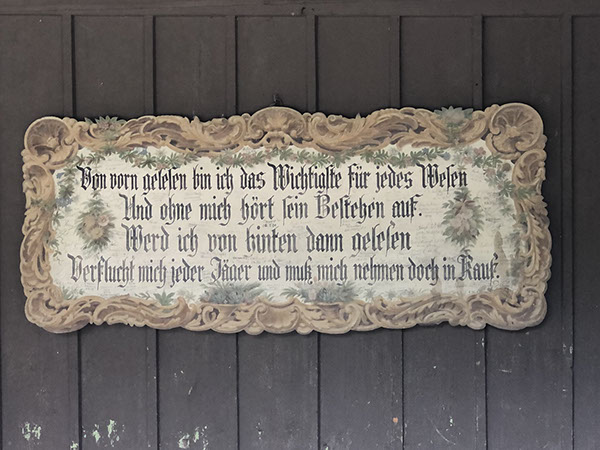 Von vorn gelesen bin ich das Wichtigste für jedes Wesen
Und ohne mich hört sein Bestehen auf.
Werd ich von hinten dann gelesen
Verflucht mich jeder Jäger und muß mich nehmen doch in Kauf.